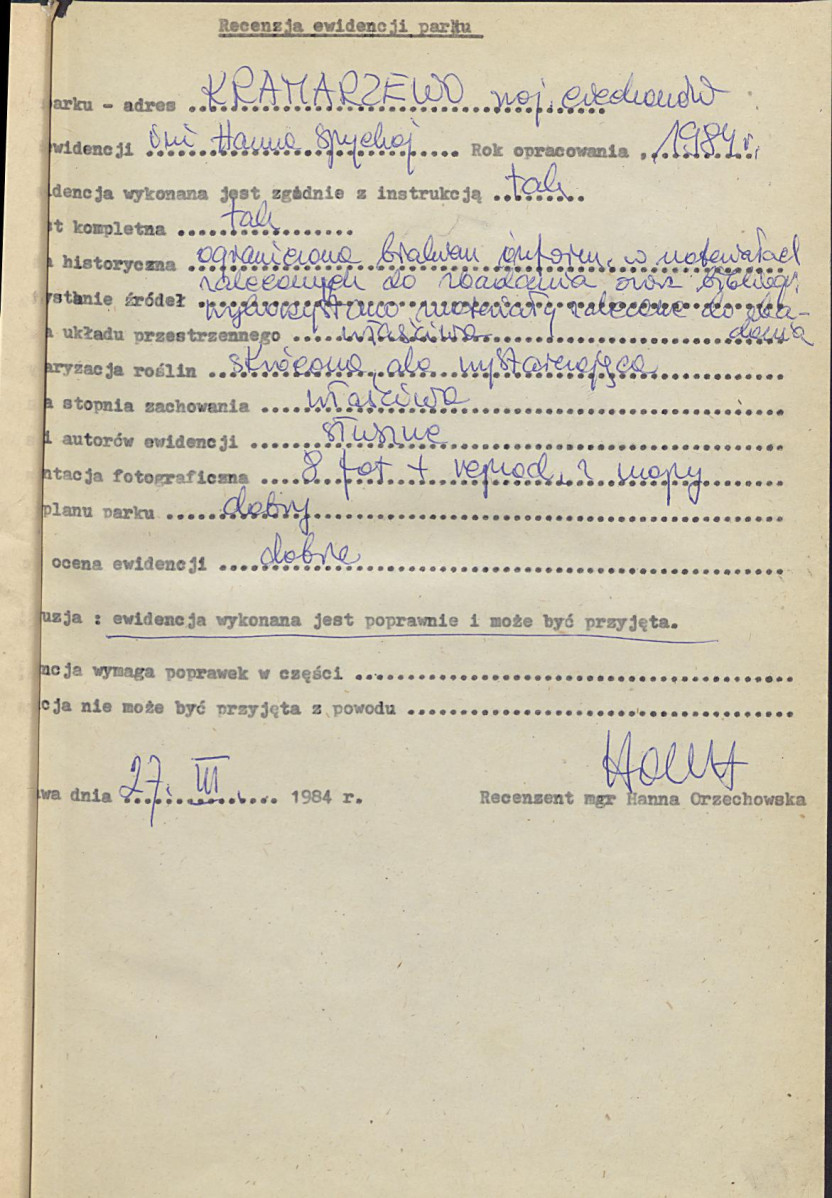 Recenzja ewidencji parku
arku - adres KRAMARZEWO woj. ciechanów
widencji inż Hanna Spychaj Rok opracowania 1984 r.
dencja wykonana jest zgodnie z instrukcją tak
t kompletna tak
a historyczna ograniczona brakiem inform. w materiałach
zaleconych do zbadania oraz bibliogr.
ystanie źródeł wykorzystano materiały zalecone do zba-
dania
a układu przestrzennego właściwa
aryzacja roślin skrócona, ale wystarczająca
a stopnia zachowania właściwa
i autorów ewidencji słuszne
ntacja fotograficzna 8 fot + reprod. z mapy
planu parku dobry
ocena ewidencji dobra
uzja : ewidencja wykonana jest poprawnie i może być przyjęta.
ncja wymaga poprawek w części
cja nie może być przyjęta z powodu
wa dnia 27. III 1984 r.
Recenzent mgr Hanna Orzechowska